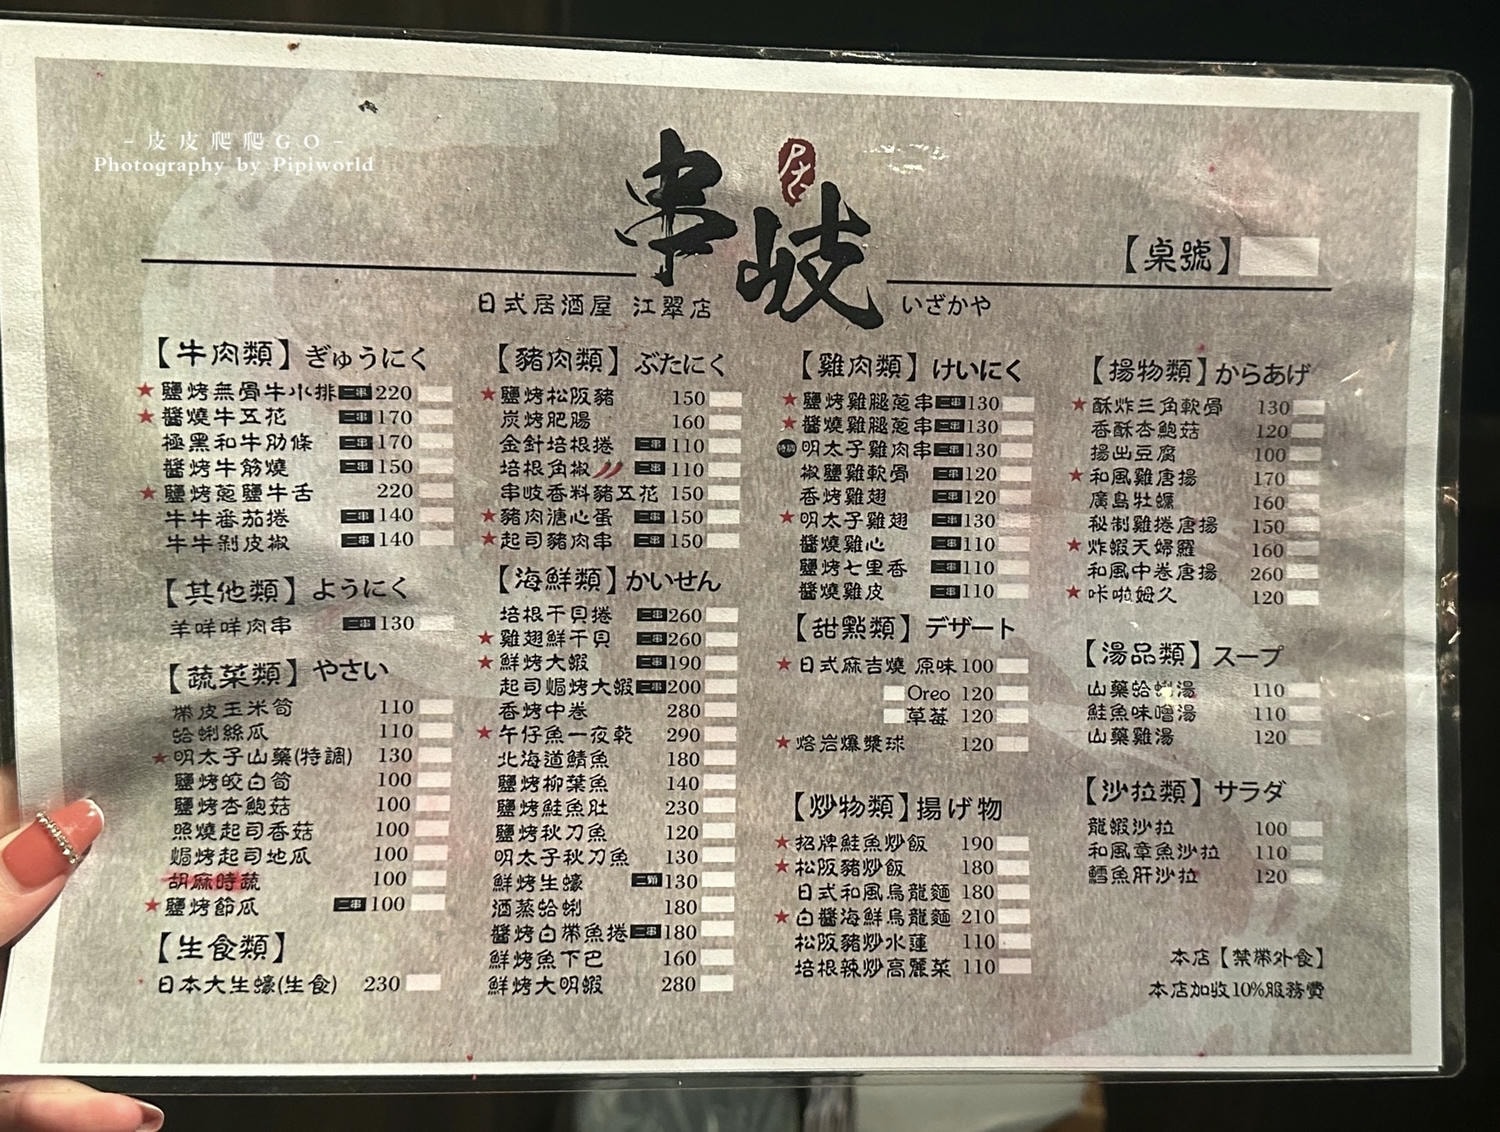 - 皮皮爬爬GO -
Photography by Pipiworld
串岐
居
【桌號】
日式居酒屋 江翠店
いざかや
【牛肉類】ぎゅうにく
★鹽烤無骨牛小排 二串 220
★醬燒牛五花 二串 170
極黑和牛肋條 二串 170
醬烤牛筋燒 二串 150
★鹽烤蔥鹽牛舌 220
牛牛番茄捲 二串 140
牛牛剝皮椒 二串 140
【其他類】ようにく
羊咩咩肉串 二串 130
【蔬菜類】やさい
帶皮玉米筍 110
蛤蜊絲瓜 110
★明太子山藥(特調) 130
鹽烤皎白筍 100
鹽烤杏鮑菇 100
照燒起司香菇 100
焗烤起司地瓜 100
胡麻時蔬 100
★鹽烤節瓜 二串 100
【生食類】
日本大生蠔(生食) 230
【豬肉類】ぶたにく
★鹽烤松阪豬 150
炭烤肥腸 160
金針培根捲 二串 110
培根角椒 二串 110
串岐香料豬五花 150
★豬肉溏心蛋 二串 150
★起司豬肉串 二串 150
【海鮮類】かいせん
培根干貝捲 二串 260
★雞翅鮮干貝 二串 260
★鮮烤大蝦 二串 190
起司焗烤大蝦 二串 200
香烤中卷 280
★午仔魚一夜乾 290
北海道鯖魚 180
鹽烤柳葉魚 140
鹽烤鮭魚肚 230
鹽烤秋刀魚 120
明太子秋刀魚 130
鮮烤生蠔 二顆 130
酒蒸蛤蜊 180
醬烤白帶魚捲 二串 180
鮮烤魚下巴 160
鮮烤大明蝦 280
【雞肉類】けいにく
★鹽烤雞腿蔥串 二串 130
★醬燒雞腿蔥串 二串 130
明太子雞肉串 二串 130
椒鹽雞軟骨 二串 120
香烤雞翅 二串 120
★明太子雞翅 二串 130
醬燒雞心 二串 110
鹽烤七里香 二串 110
醬燒雞皮 二串 110
【甜點類】デザート
★日式麻吉燒 原味 100
Oreo 120
草莓 120
★熔岩爆漿球 120
【炒物類】揚げ物
★招牌鮭魚炒飯 190
★松阪豬炒飯 180
日式和風烏龍麵 180
★白醬海鮮烏龍麵 210
松阪豬炒水蓮 110
培根辣炒高麗菜 110
【揚物類】からあげ
★酥炸三角軟骨 130
香酥杏鮑菇 120
揚出豆腐 100
★和風雞唐揚 170
廣島牡蠣 160
秘制雞捲唐揚 150
★炸蝦天婦羅 160
和風中卷唐揚 260
★咔啦姆久 120
【湯品類】スープ
山藥蛤蜊湯 110
鮭魚味噌湯 110
山藥雞湯 120
【沙拉類】サラダ
龍蝦沙拉 100
和風章魚沙拉 110
鱈魚肝沙拉 120
本店【禁帶外食】
本店加收10%服務費